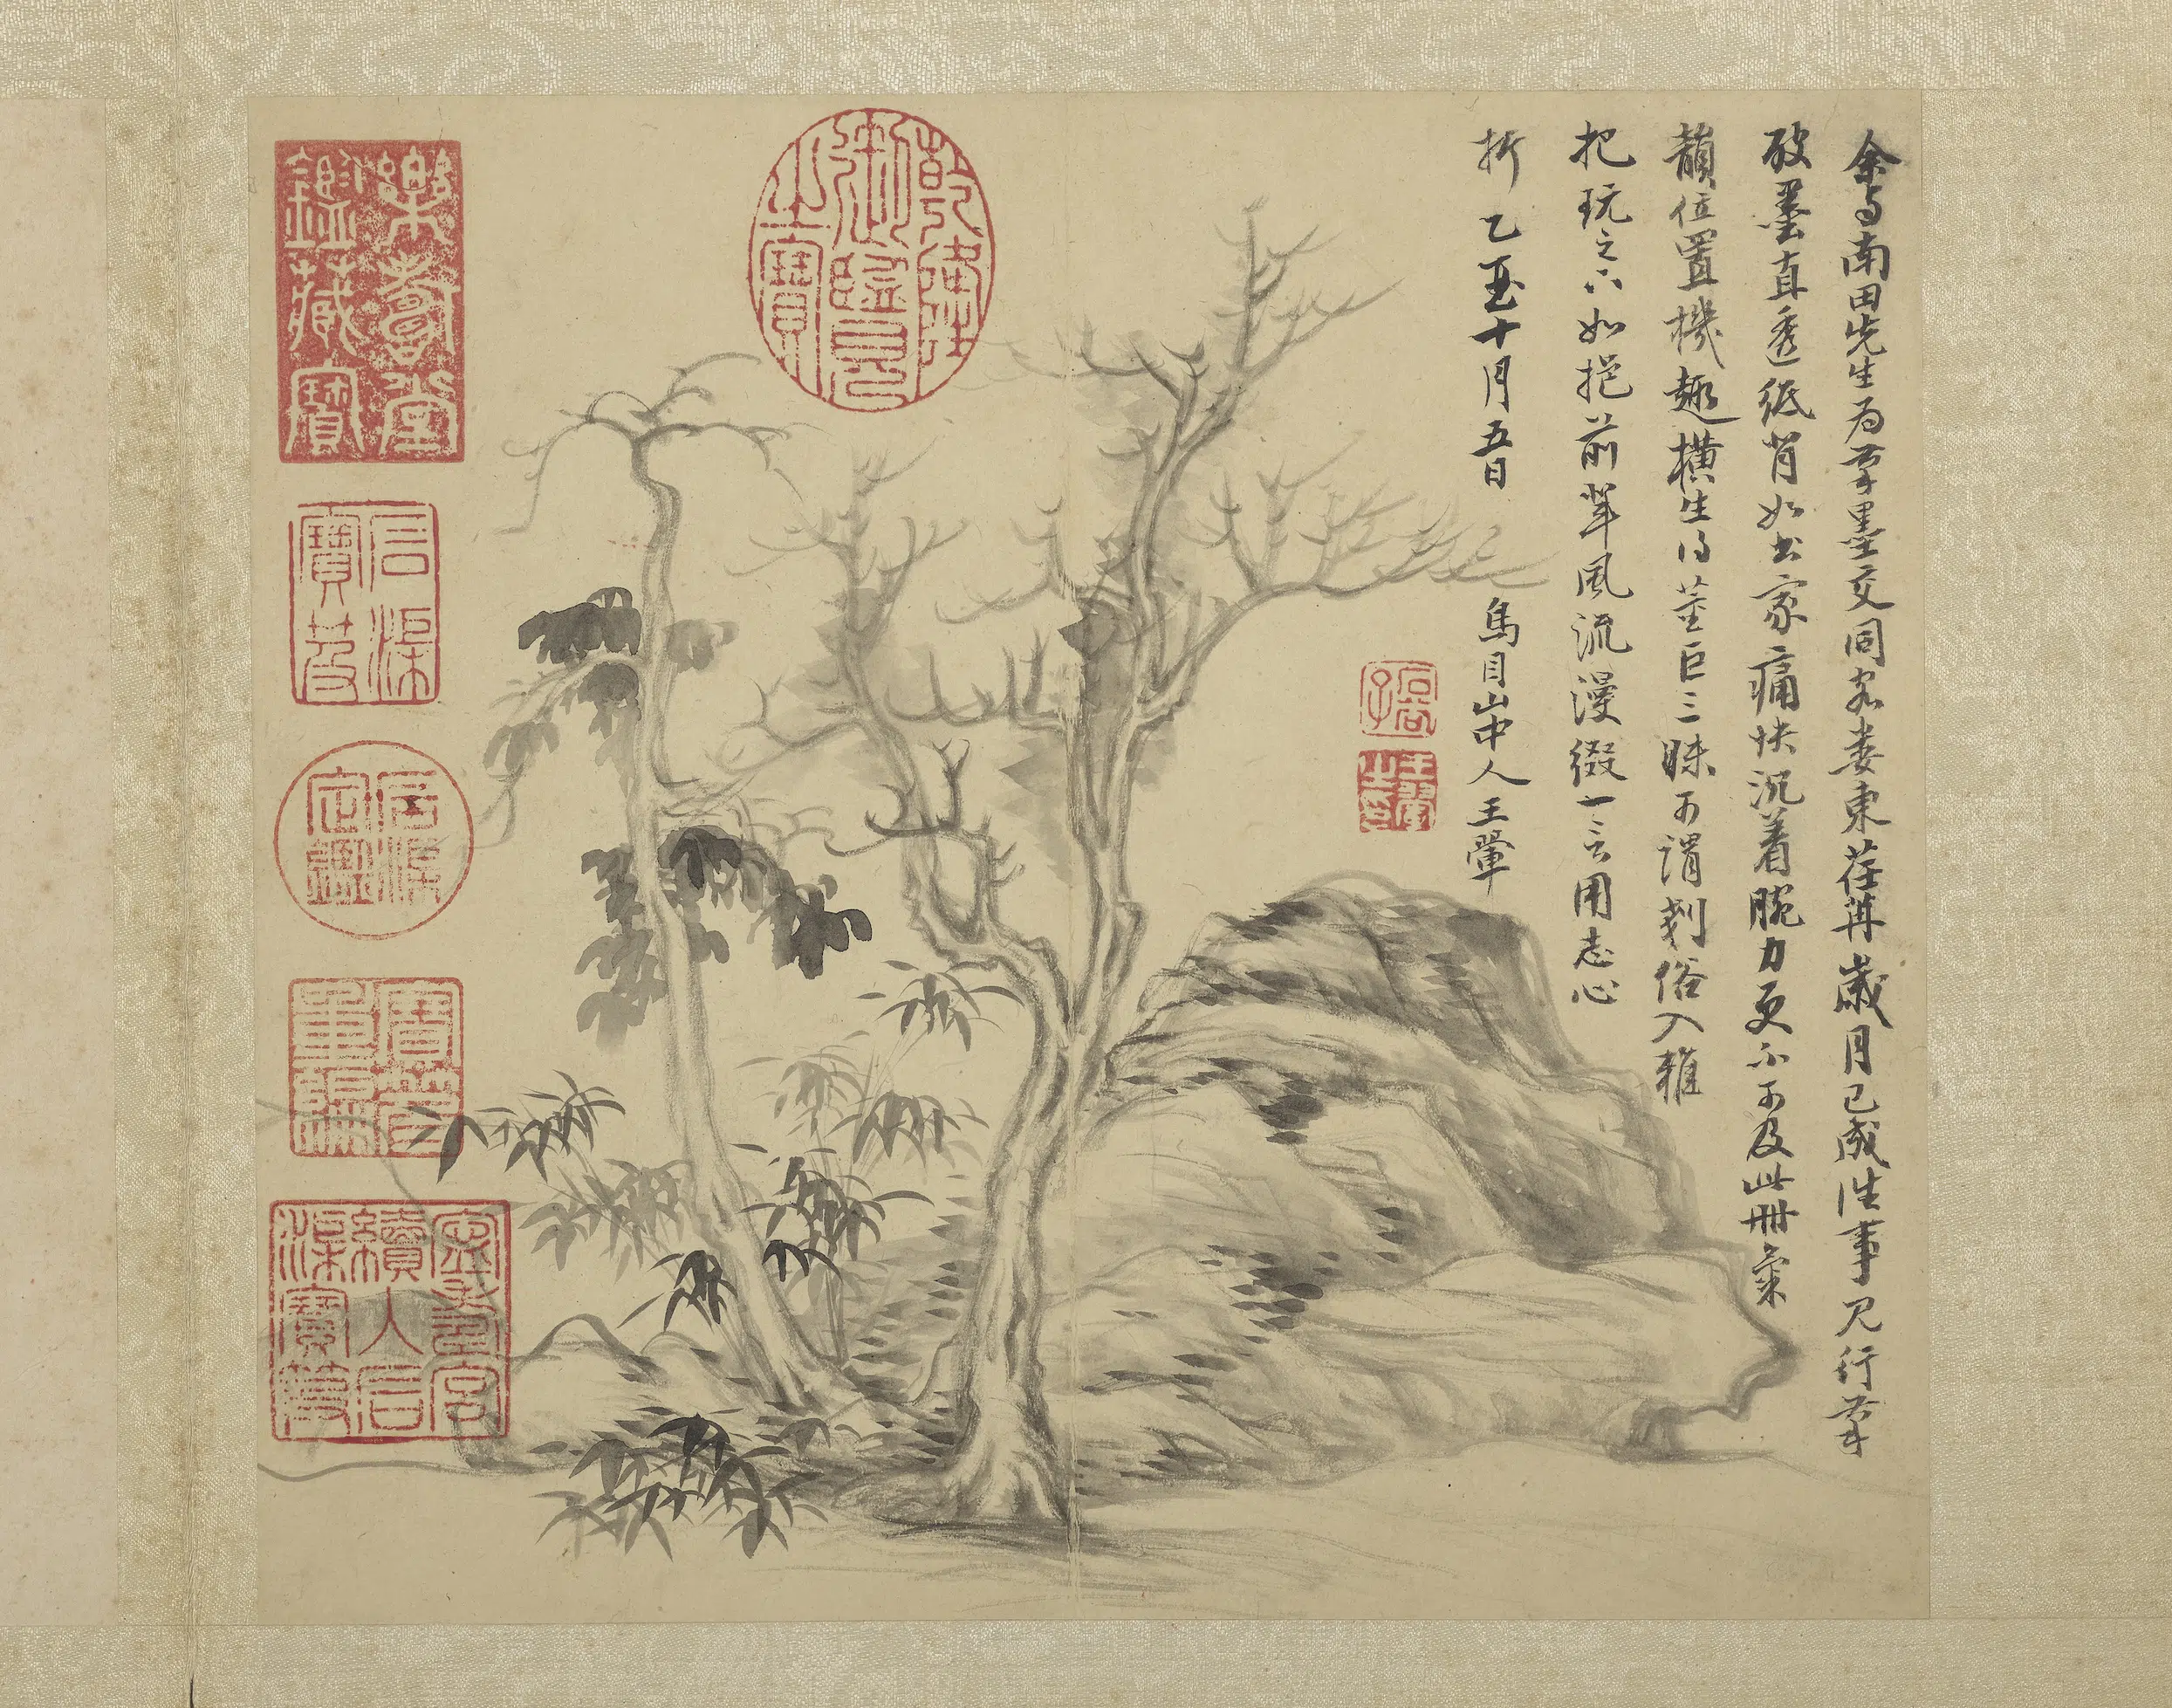 余与南田先生为笔墨交同客娄東荏苒歲月已成往事見行筆
破墨直透紙背如書家痛快沉着腕力更不可及此冊氣
韻位置機趣橫生得董巨三昧可謂剗俗入雅
把玩之下如挹前輩風流漫綴一言用志心
折 乙丑十月五日 烏目山中人王翬
石谷子
王翬之印
乾隆御覽之寶
樂壽堂鑑藏寶
石渠寶笈
石渠定鑑
寶笈重編
寧壽宮續入石渠寶笈